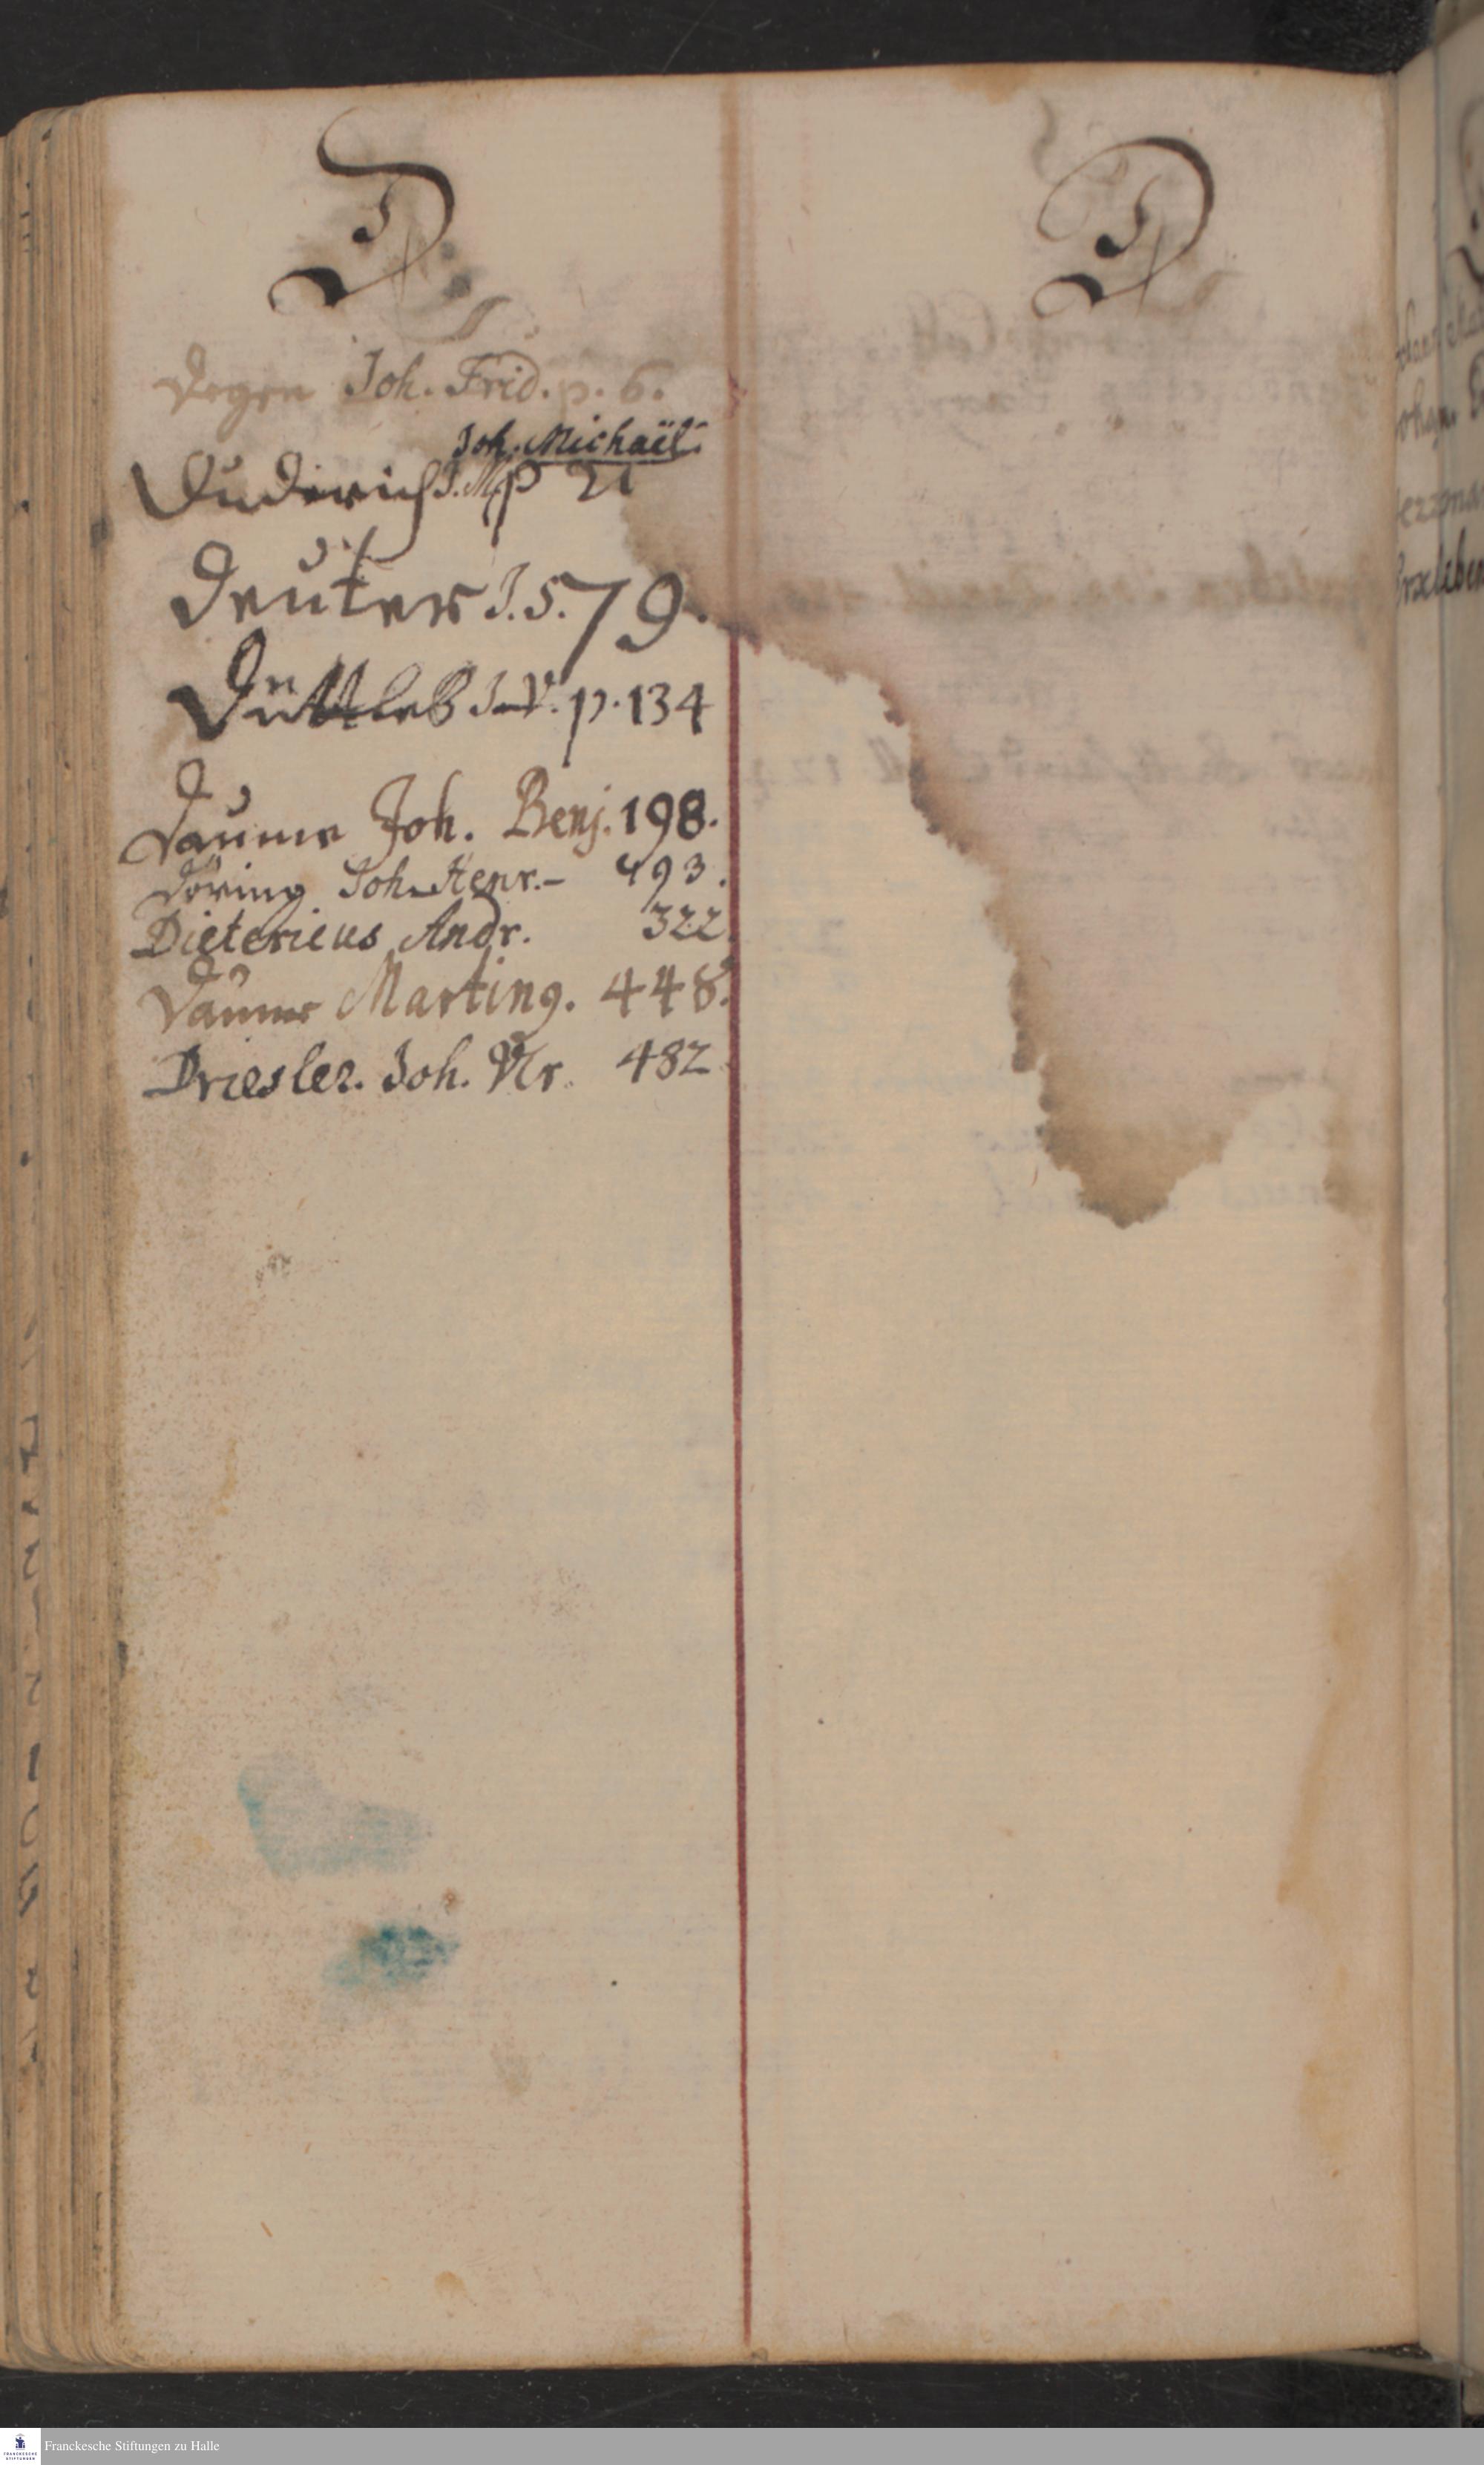 D
Degen Joh. Frid. p. 6.
Joh. Michaël.
Duderich J. M. p 21
Deuter J. S. 79.
p. 134
Daume Joh. Benj. 198.
Döring Joh. Henr. – 493.
Dietericus Andr. 322.
Daume Martin9. 448.
Driesler. Joh. Ulr. 482
D
Franckesche Stiftungen zu Halle